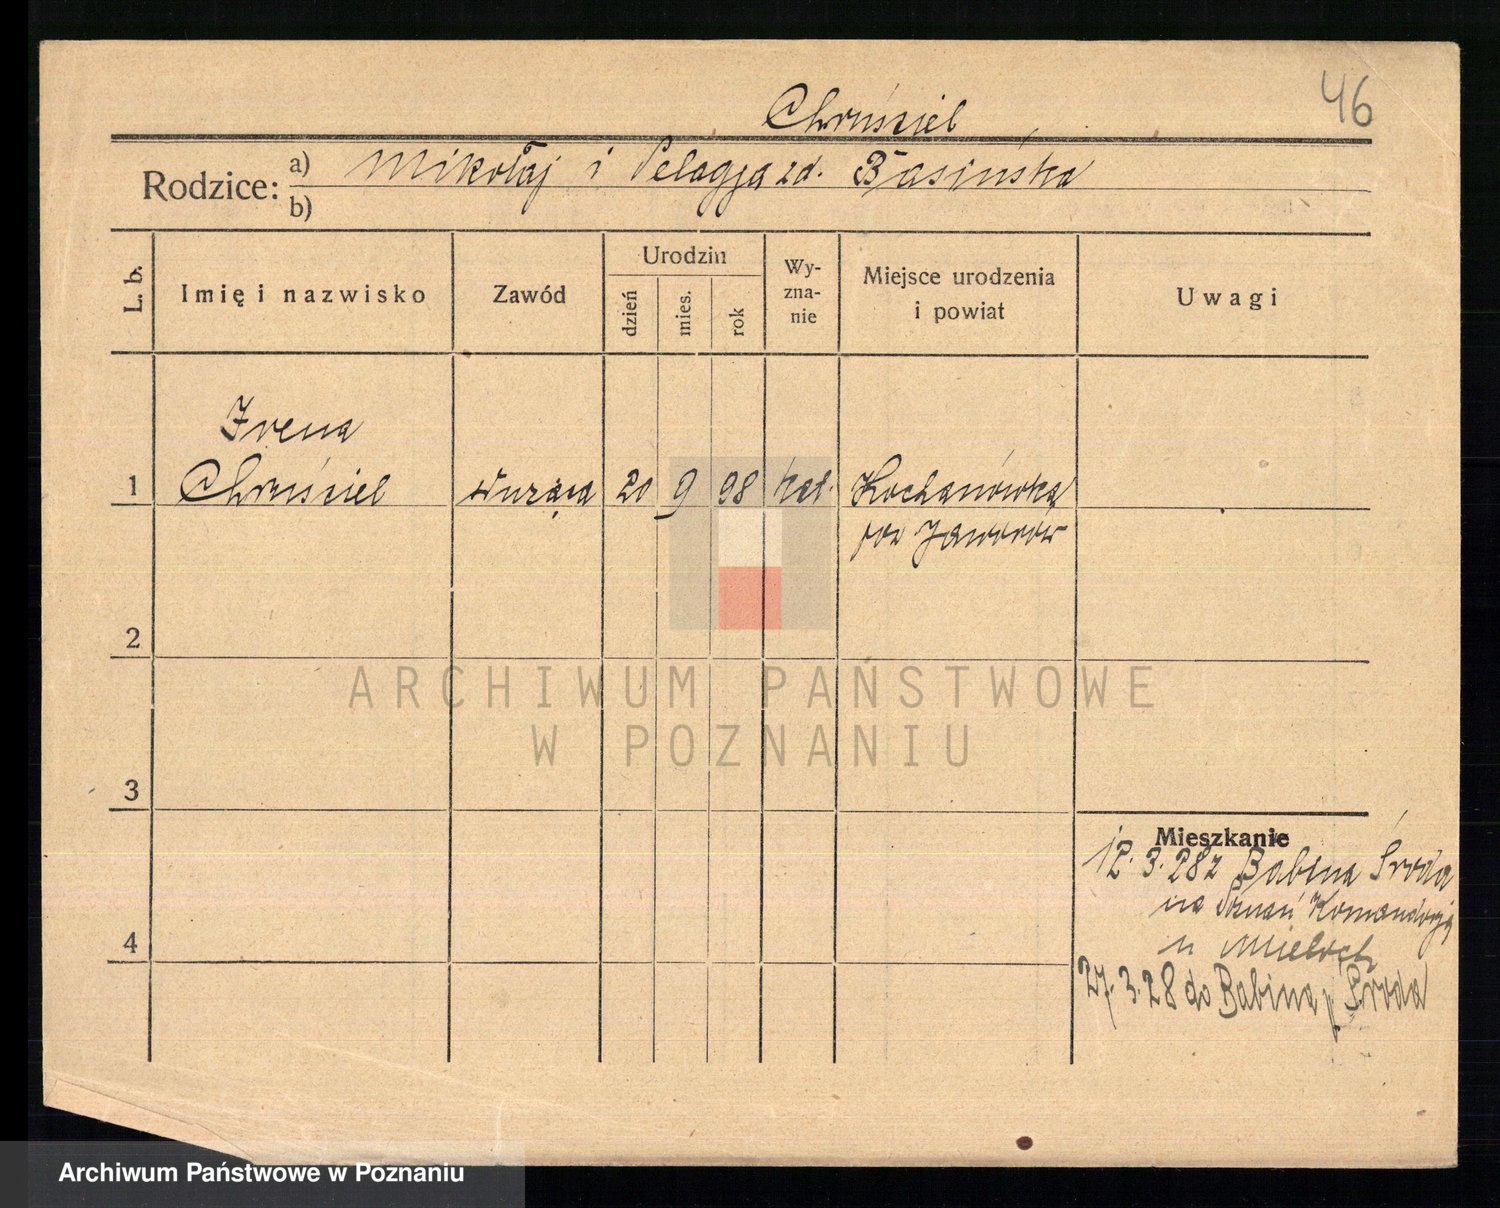 46
Chruściel
Rodzice: a) Mikołaj i Pelagja zd. Basińska
b)
L. b.
Imię i nazwisko
Zawód
Urodzin
dzień
mies.
rok
Wy-
zna-
nie
Miejsce urodzenia
i powiat
Uwagi
Irena
1 Chruściel służąca 20 9 98 kat. Kochanówka
pow Jaworów
2
3
4
Mieszkanie
12.3.28 z Babina Środa
na Poznań
u Mieloch
27.3.28 do Babina p. Środa
ARCHIWUM PAŃSTWOWE
W POZNANIU
Archiwum Państwowe w Poznaniu